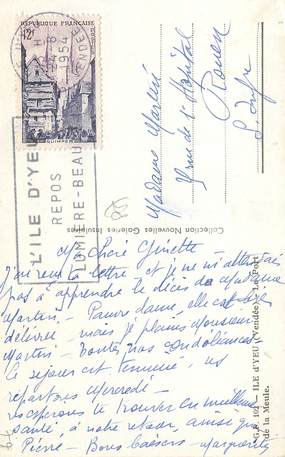 REPUBLIQUE FRANÇAISE
12F
QUIMPER
1954
VENDEE
L'ILE D'YEU
REPOS
LUMIERE-BEAU
Madame Martin
rue de l'Hôpital
Rouen
S. Infre
Collection Nouvelles Galeries Insulaires
G.R. 102 - ILE d'YEU (Vendée) - Le Port
de la Meule.
Ma Chère Ginette
J'ai reçu ta lettre et je ne m'attendais
pas à apprendre le décès de Madame
Martin - Pauvre dame, elle est bien
délivrée, mais je plains Monsieur
Martin - Toutes nos condoléances.
Le séjour est terminé, ns
repartons Mercredi -
espérons te trouver en meilleure
santé, à notre retour, ainsi que
Pierre - Bons baisers - Marguerite